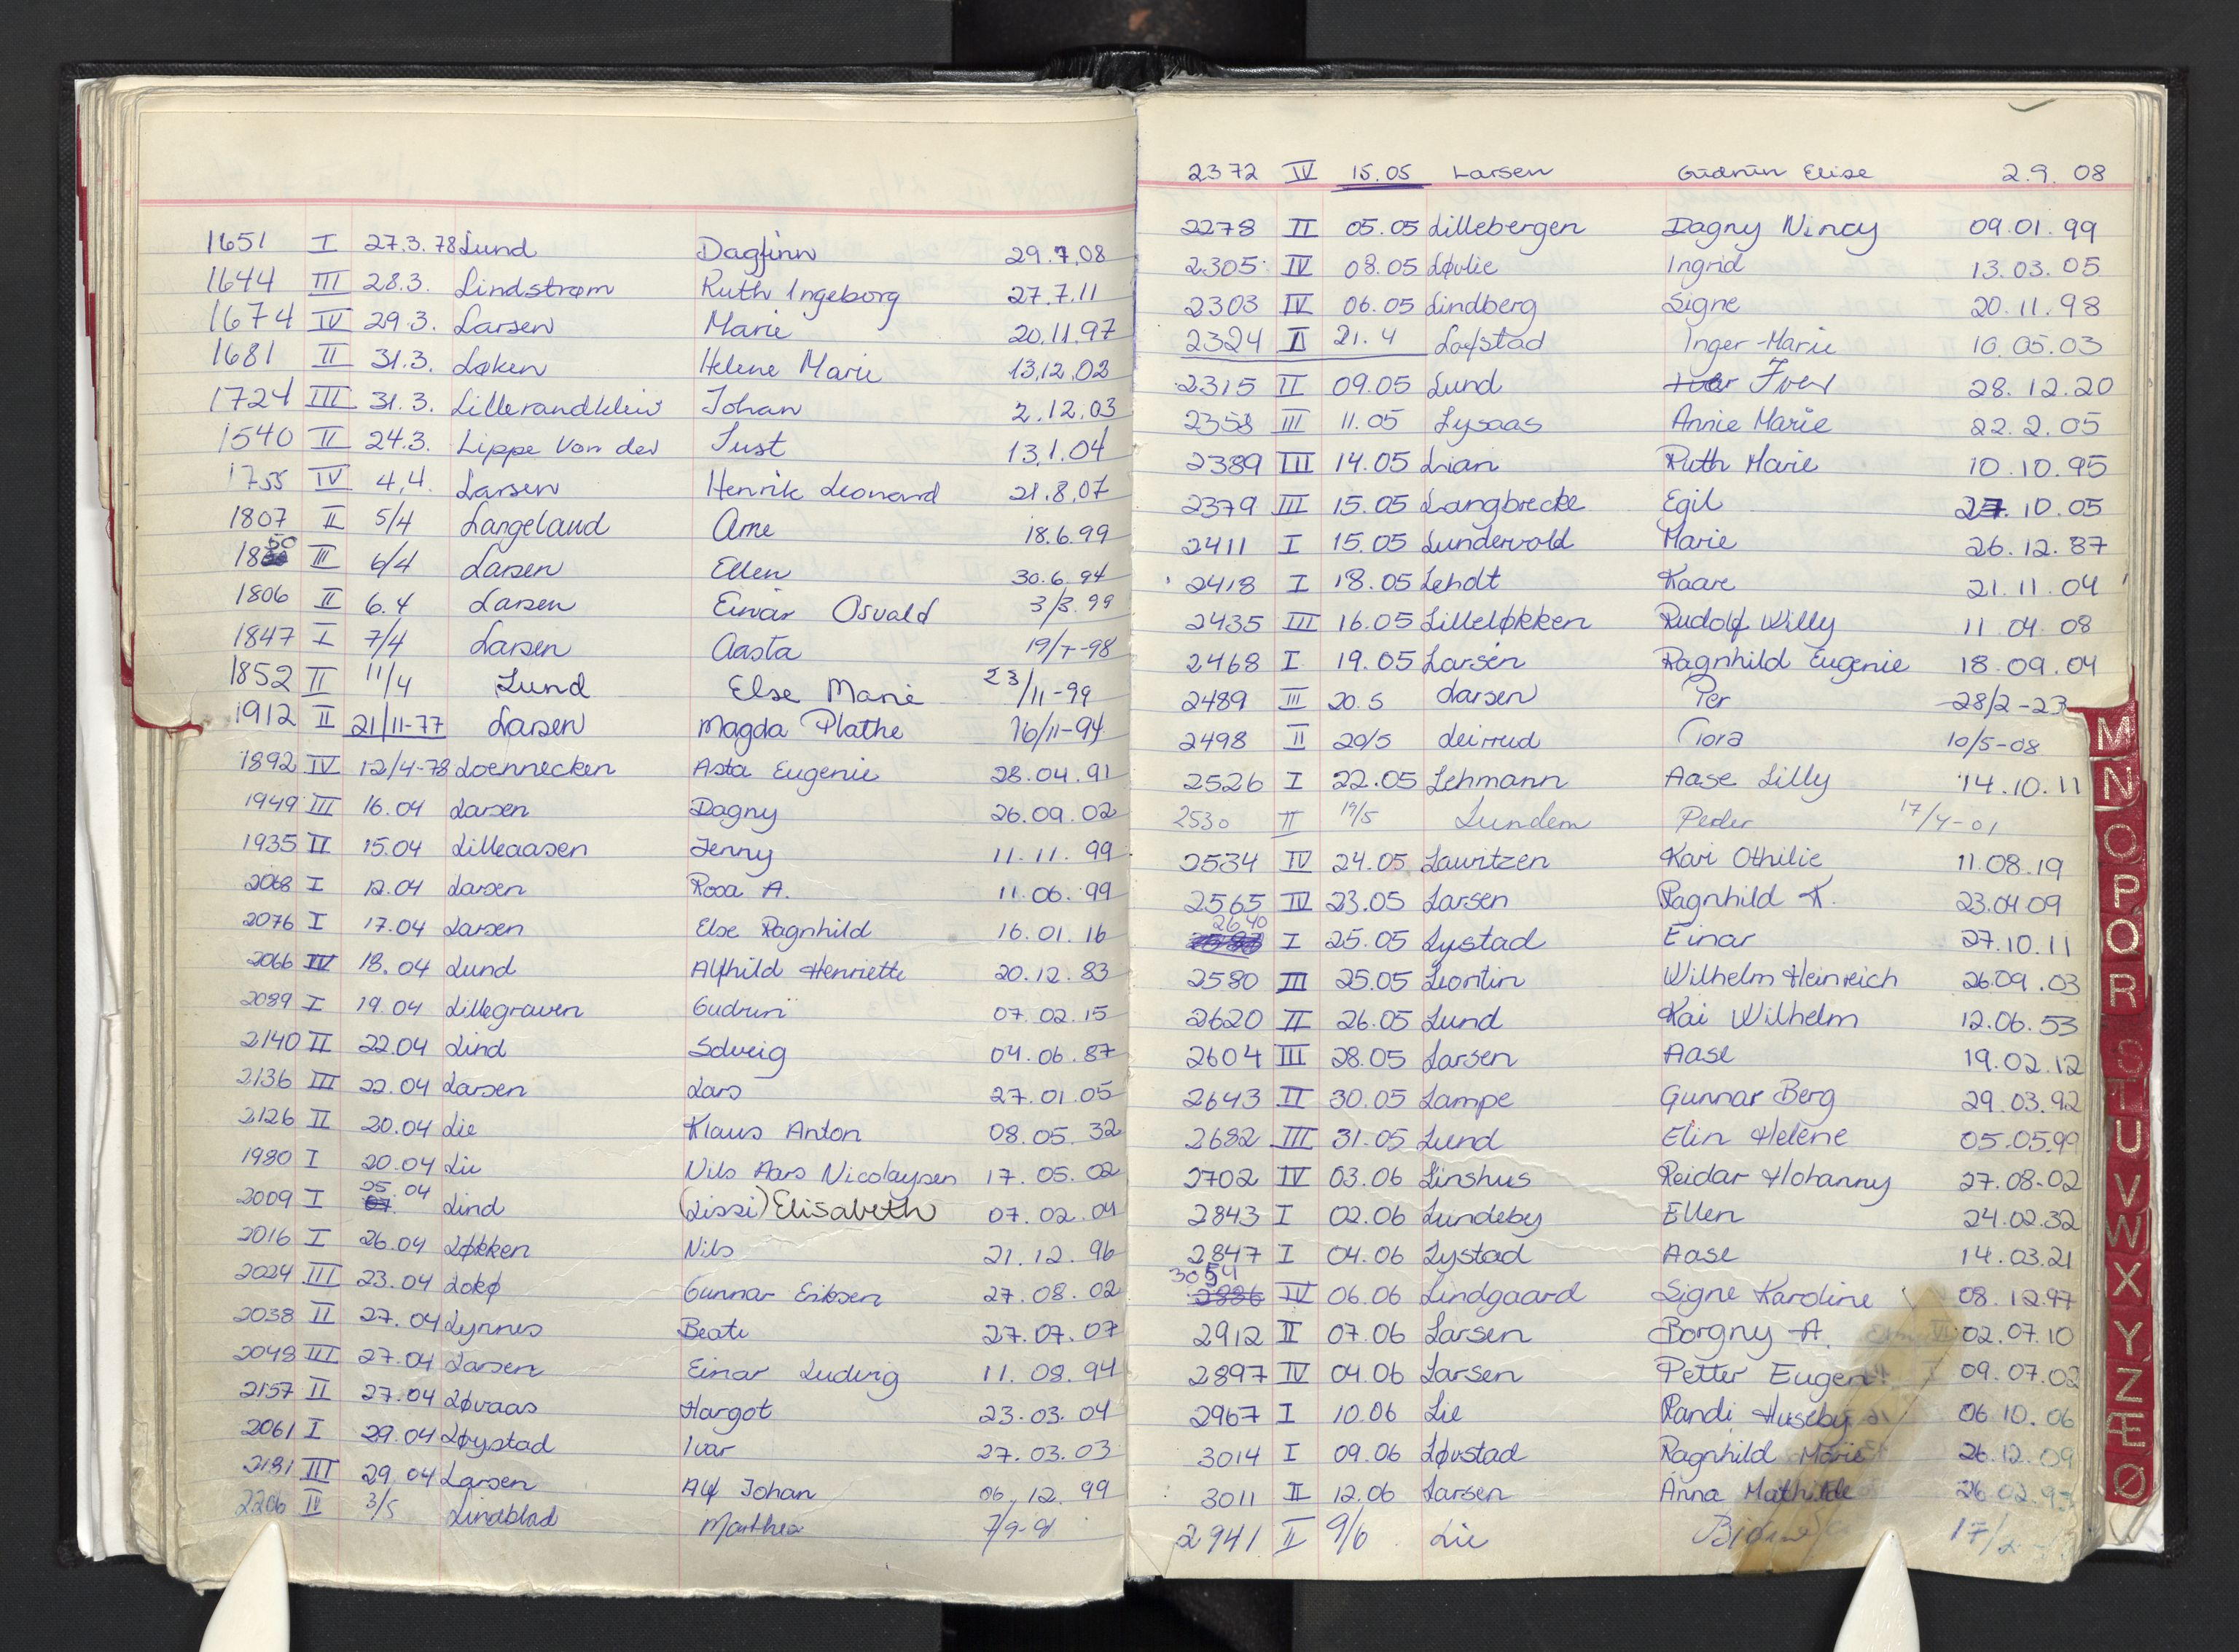 1651 I 27.3.78 Lund Dagfinn 29.7.08
1644 III 28.3. Lindstrøm Ruth Ingeborg 27.7.11
1674 IV 29.3. Larsen Marie 20.11.97
1681 II 31.3. Løken Helene Marie 13.12.02
1724 III 31.3. Johan 2.12.03
1540 II 24.3. Lippe Von der Just 13.1.04
1755 IV 4.4. Larsen Henrik Leonard 21.8.07
1807 II 5/4 Langeland Arne 18.6.99
1850 III 6/4 Larsen Ellen 30.6.94
1806 II 6.4 Larsen Einar Osvald 3/3.99
1847 I 7/4 Larsen Aasta 19/7-98
1852 II 11/4 Lund Else Marie 23/11-99
1912 II 21/11-77 Larsen Magda Plathe 16/11-94
1892 IV 12/4-78 Loennecken Asta Eugenie 28.04.91
1949 III 16.04 Larsen Dagny 26.09.02
1935 II 15.04 Lilleaasen Jenny 11.11.99
2068 I 12.04 Larsen Rosa A. 11.06.99
2076 I 17.04 Larsen Else Ragnhild 16.01.16
2066 IV 18.04 Lund Alfhild Henriette 20.12.83
2089 I 19.04 Lillegraven Gudrun 07.02.15
2140 II 22.04 Lind Solveig 04.06.87
2136 III 22.04 Larsen Lars 27.01.05
2126 II 20.04 Lie Klaus Anton 08.05.32
1980 I 20.04 Lie Nils Aars Nicolaysen 17.05.02
2009 I 25.04 Lind (Lissi) Elisabeth 07.02.04
2016 I 26.04 Løkken Nils 21.12.96
2024 III 23.04 Lokø Gunnar Eriksen 27.08.02
2038 II 27.04 Lynnes Beate 27.07.07
2048 III 27.04 Larsen Einar Ludvig 11.08.94
2157 II 27.04 Løvaas Margot 23.03.04
2061 I 29.04 Løystad Ivar 27.03.03
2181 III 29.04 Larsen Alf Johan 06.12.99
2206 IV 3/5 Lindblad Marthea
2372 IV 15.05 Larsen Gudrun Elise 2.9.08
2278 II 05.05 Lillebergen Dagny Nincy 09.01.99
2305 IV 08.05 Løvlie Ingrid 13.03.05
2303 IV 06.05 Lindberg Signe 20.11.98
2324 II 21.4 Lofstad Inger-Marie 10.05.03
2315 II 09.05 Lund Iver 28.12.20
2358 III 11.05 Lysaas Annie Marie 22.2.05
2389 III 14.05 Lian Ruth Marie 10.10.95
2379 III 15.05 Langbrecke Egil 27.10.05
2411 I 15.05 Lundervold Marie 26.12.87
2418 I 18.05 Lehdt Kaare 21.11.04
2435 III 16.05 Lilleløkken Rudolf Willy 11.04.08
2468 I 19.05 Larsen Ragnhild Eugenie 18.09.04
2489 III 20.5 Larsen Per 28/2-23
2498 II 20/5 Leirrud Tora 10/5-08
2526 I 22.05 Lehmann Aase Lilly 14.10.11
2530 II 19/5 Lundem Peder 17/4-01
2534 IV 24.05 Lauritzen Kari Othilie 11.08.19
2565 IV 23.05 Larsen Ragnhild K. 23.04.09
2640 I 25.05 Lystad Einar 27.10.11
2580 III 25.05 Leontin Wilhelm Heinreich 26.09.03
2620 II 26.05 Lund Kai Wilhelm 12.06.53
2604 III 28.05 Larsen Aase 19.02.12
2643 II 30.05 Lampe Gunnar Berg 29.03.92
2682 III 31.05 Lund Elin Helene 05.05.99
2702 IV 03.06 Linshus Reidar Hohanny 27.08.02
2843 I 02.06 Lundeby Ellen 24.02.32
2847 I 04.06 Lystad Aase 14.03.21
3054
2886 IV 06.06 Lindgaard Signe Karoline 08.12.97
2912 II 07.06 Larsen Borgny A. 02.07.10
2897 IV 04.06 Larsen Petter Eugen 09.07.02
2967 I 10.06 Lie Randi Huseby 06.10.06
3014 I 09.06 Løvstad Ragnhild Marie 26.12.09
3011 II 12.06 Larsen Anna Mathilde
2941 II 9/6 Lie
M
N
O
P
Q
R
S
T
U
V
W
X
Y
Z
Æ
Ø